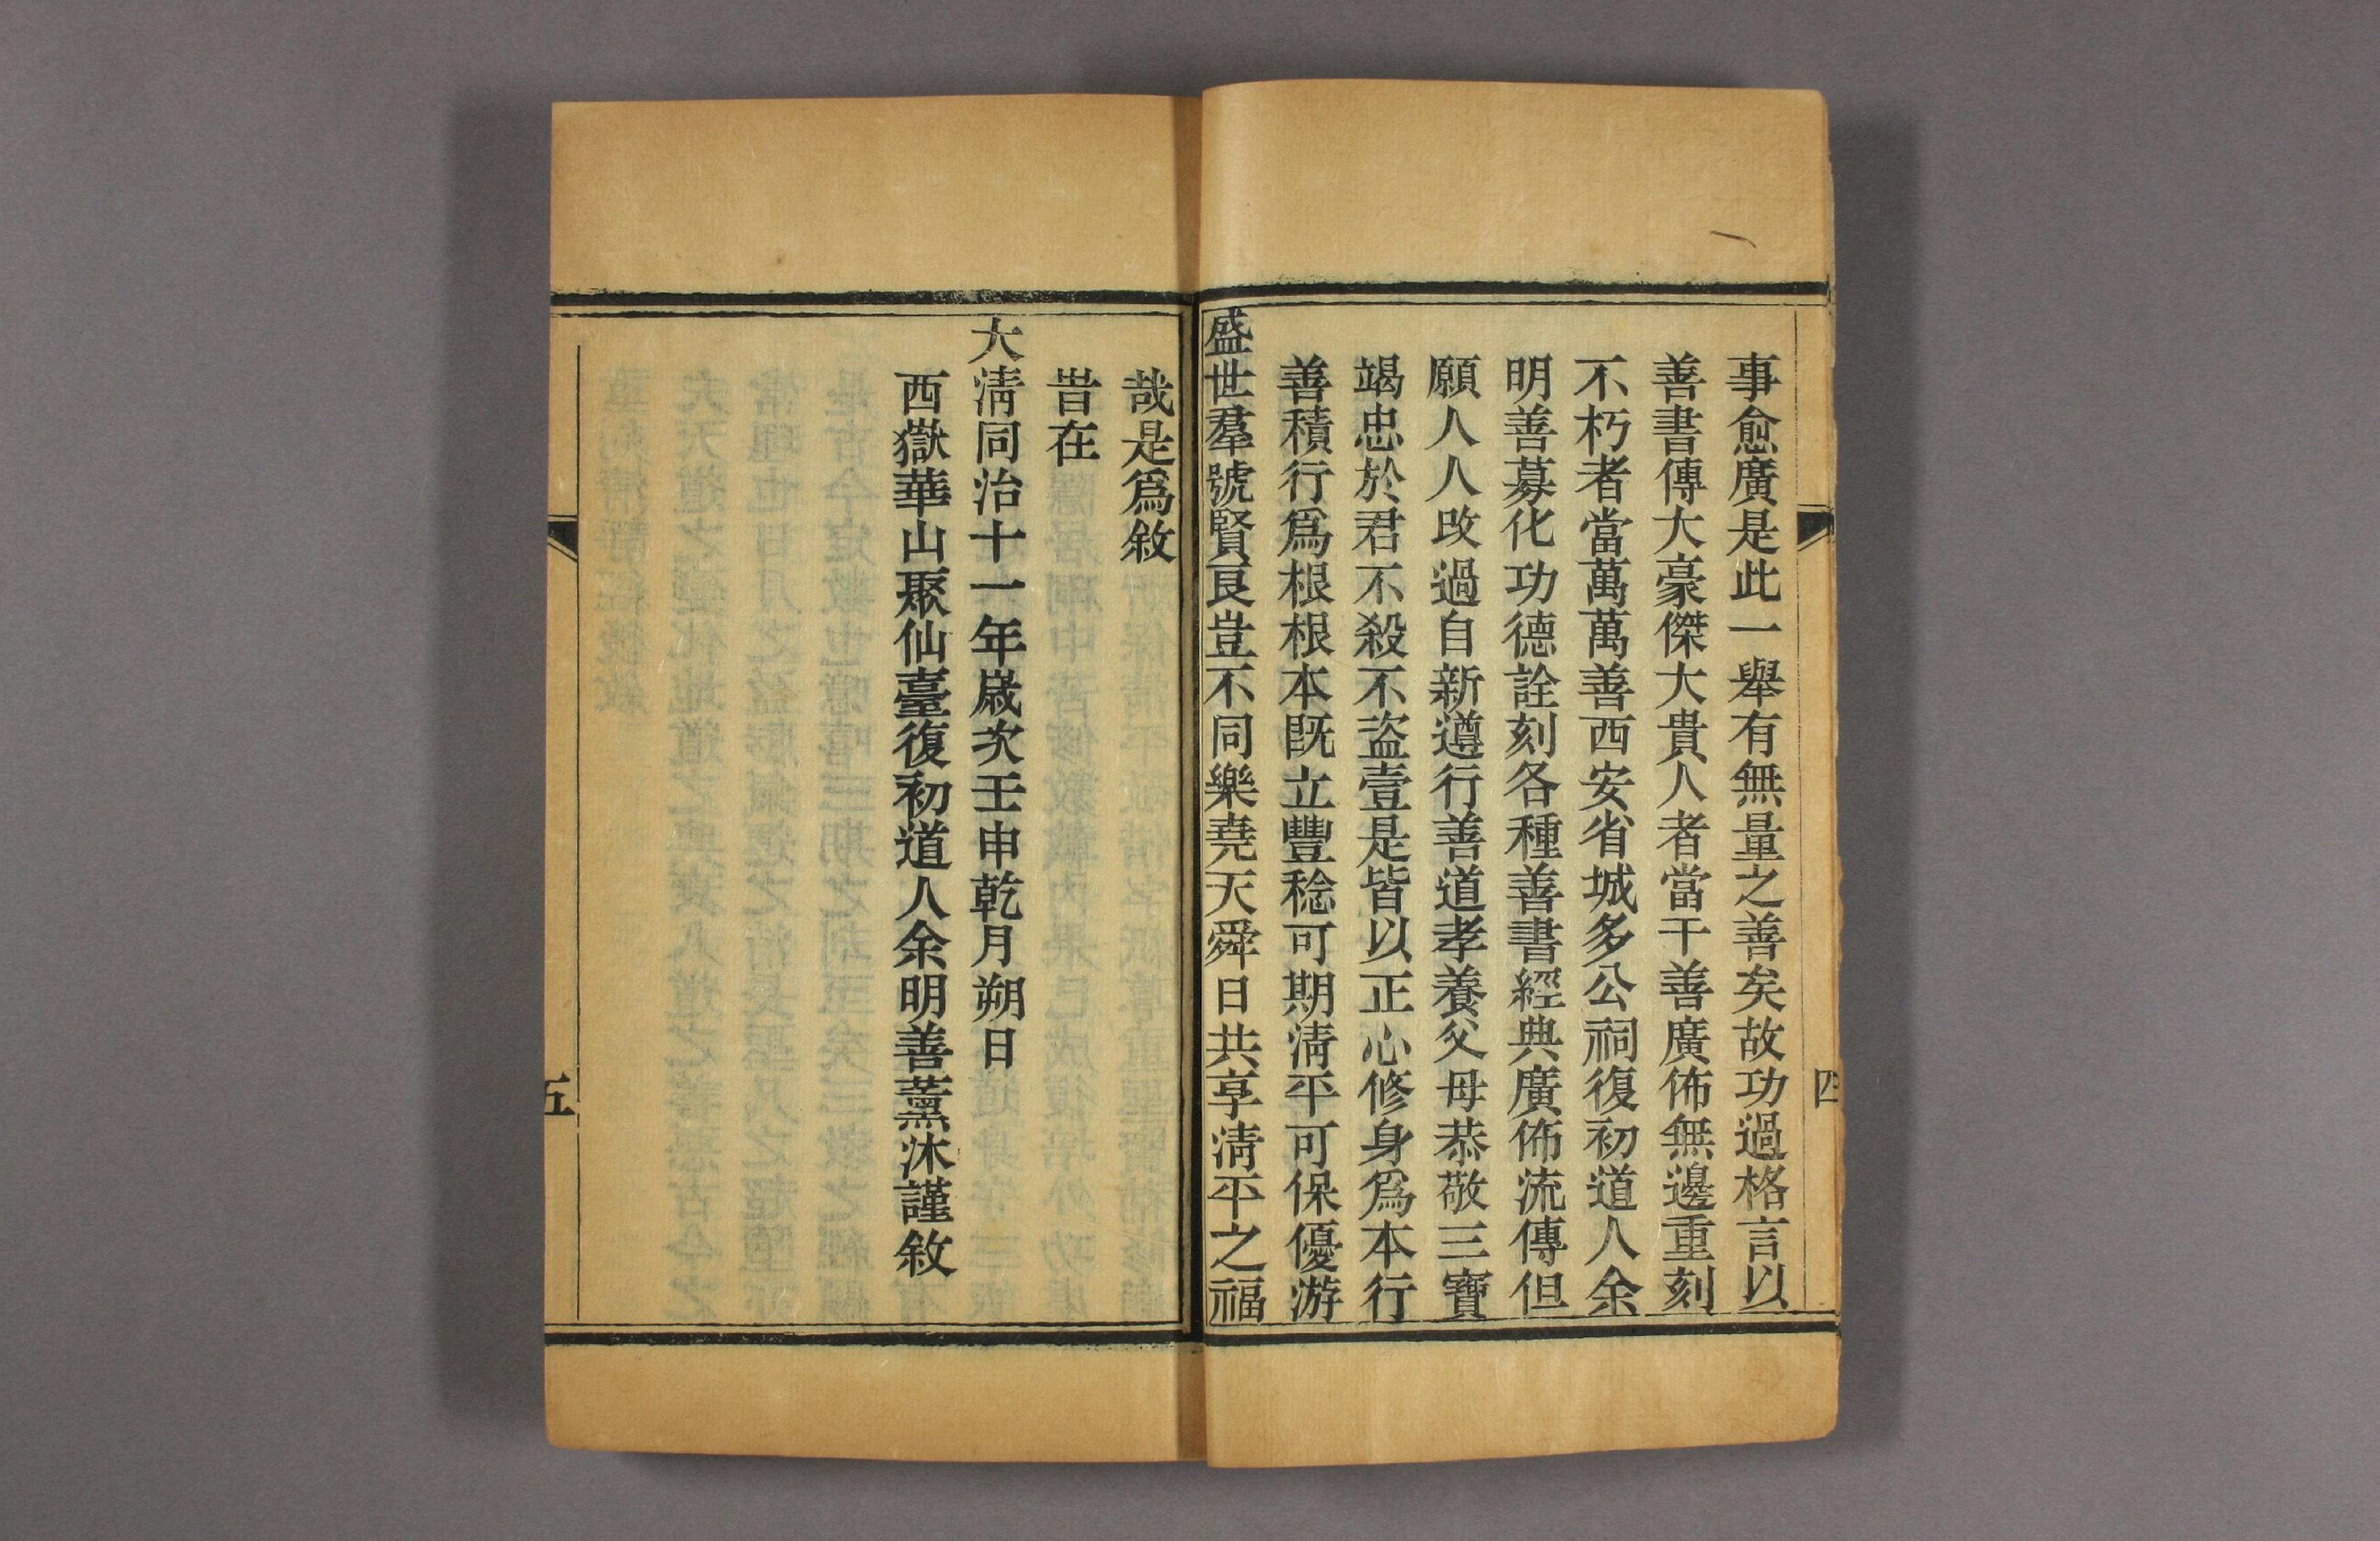 事愈廣是此一舉有無量之善矣故功過格言以
善書傳大豪傑大貴人者當干善廣佈無邊重刻
不朽者當萬萬善西安省城多公祠復初道人余
明善募化功德詮刻各種善書經典廣佈流傳但
願人人改過自新遵行善道孝養父母恭敬三寶
竭忠於君不殺不盜壹是皆以正心修身爲本行
善積行爲根根本既立豐稔可期淸平可保優游
盛世羣號賢良豈不同樂堯天舜日共享淸平之福
四
哉是爲敘
旹在
大淸同治十一年歲次壬申乾月朔日
西嶽華山聚仙臺復初道人余明善薰沐謹敘
五